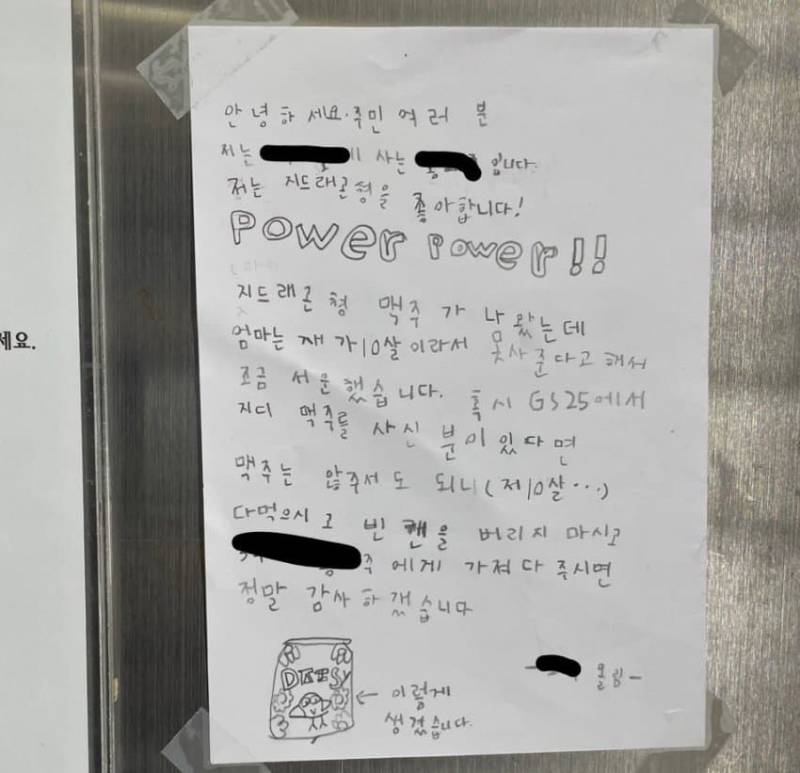 세요.
안녕하세요. 주민 여러분
저는 사는 입니다.
저는 지드래곤형을 좋아합니다!
Power Power!!
지드래곤 형 맥주가 나왔는데
엄마는 재가 10살이라서 못사준다고 해서
조금 서운했습니다. 혹시 GS25에서
지디 맥주를 사신 분이 있다면
맥주는 않주서도 되니 (제10살···)
다먹으시고 빈 캔을 버리지 마시고
에게 가져다 주시면
정말 감사하겠습니다
올림-
← 이렇게
생겼습니다.